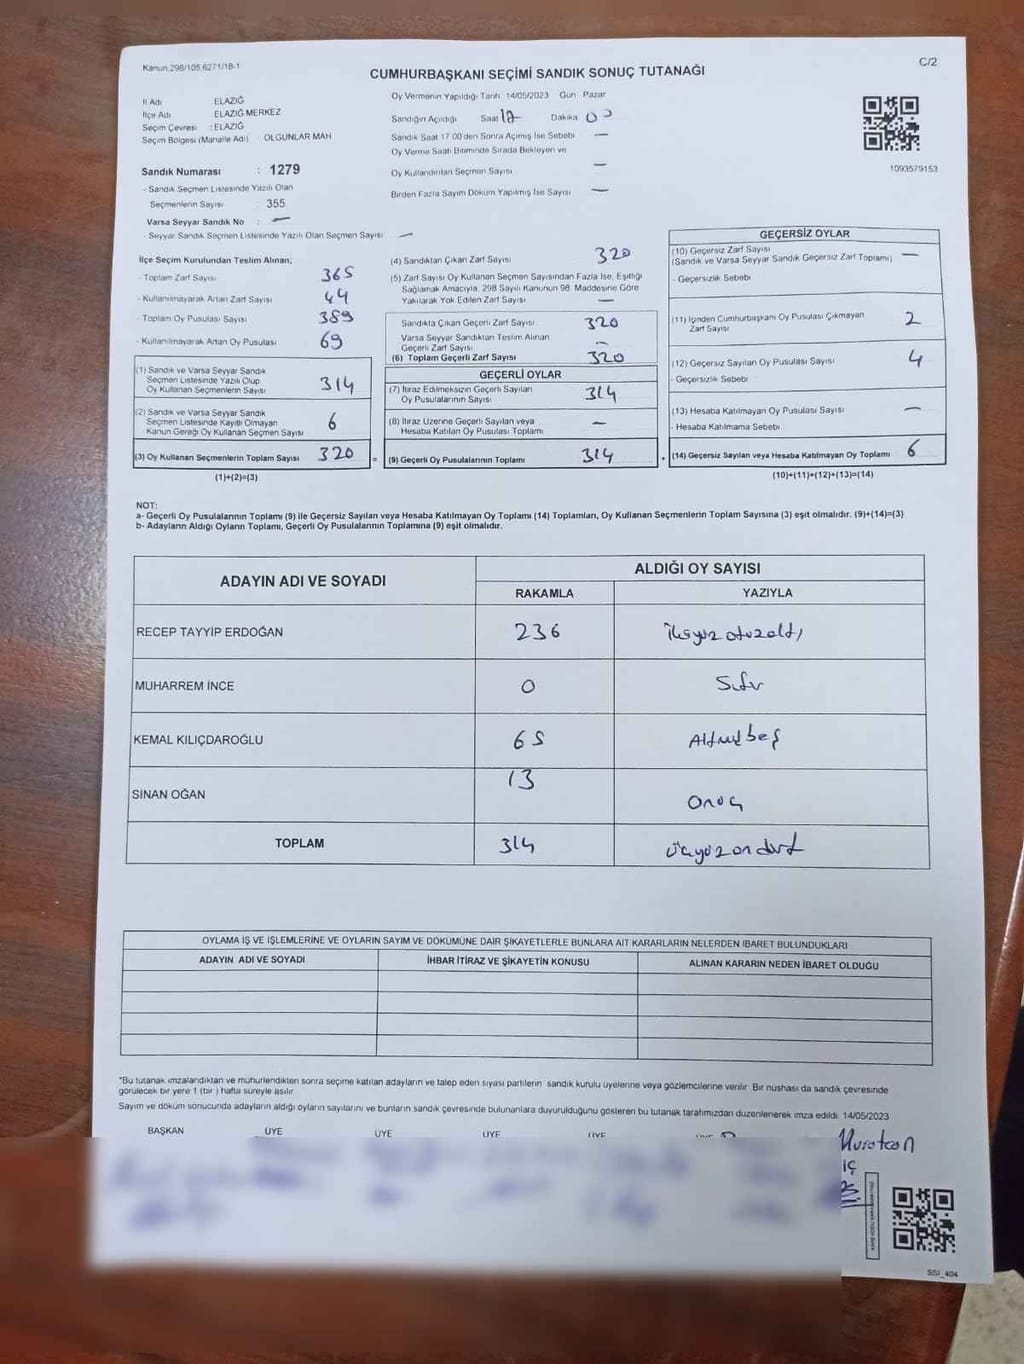 Kanun.298/105,6271/18-1
C/2
CUMHURBAŞKANI SEÇİMİ SANDIK SONUÇ TUTANAĞI
İl Adı ELAZIĞ
İlçe Adı ELAZIĞ MERKEZ
Seçim Çevresi : ELAZIĞ
Seçim Bölgesi (Mahalle Adı) OLGUNLAR MAH
Oy Vermenin Yapıldığı Tarih 14/05/2023 Gün Pazar
Sandığın Açıldığı Saat 17 Dakika 00
Sandık Saat 17 00'den Sonra Açılmış İse Sebebi —
Oy Verme Saati Bitiminde Sırada Bekleyen ve
Oy Kullandırılan Seçmen Sayısı —
Birden Fazla Sayım Döküm Yapılmış İse Sayısı —
1093579153
Sandık Numarası : 1279
- Sandık Seçmen Listesinde Yazılı Olan
Seçmenlerin Sayısı : 355
Varsa Seyyar Sandık No : —
- Seyyar Sandık Seçmen Listesinde Yazılı Olan Seçmen Sayısı —
İlçe Seçim Kurulundan Teslim Alınan;
- Toplam Zarf Sayısı 365
- Kullanılmayarak Artan Zarf Sayısı 44
- Toplam Oy Pusulası Sayısı 389
- Kullanılmayarak Artan Oy Pusulası 69
(1) Sandık ve Varsa Seyyar Sandık
Seçmen Listesinde Yazılı Olup
Oy Kullanan Seçmenlerin Sayısı 314
(2) Sandık ve Varsa Seyyar Sandık
Seçmen Listesinde Kayıtlı Olmayan
Kanun Gereği Oy Kullanan Seçmen Sayısı 6
(3) Oy Kullanan Seçmenlerin Toplam Sayısı 320 =
(1)+(2)=(3)
(4) Sandıktan Çıkan Zarf Sayısı 320
(5) Zarf Sayısı Oy Kullanan Seçmen Sayısından Fazla İse, Eşitliği
Sağlamak Amacıyla, 298 Sayılı Kanunun 98. Maddesine Göre
Yakılarak Yok Edilen Zarf Sayısı —
Sandıkta Çıkan Geçerli Zarf Sayısı 320
Varsa Seyyar Sandıktan Teslim Alınan
Geçerli Zarf Sayısı —
(6) Toplam Geçerli Zarf Sayısı 320
GEÇERLİ OYLAR
(7) İtiraz Edilmeksizin Geçerli Sayılan
Oy Pusulalarının Sayısı 314
(8) İtiraz Üzerine Geçerli Sayılan veya
Hesaba Katılan Oy Pusulası Toplamı —
(9) Geçerli Oy Pusulalarının Toplamı 314 +
GEÇERSİZ OYLAR
(10) Geçersiz Zarf Sayısı
(Sandık ve Varsa Seyyar Sandık Geçersiz Zarf Toplamı) —
- Geçersizlik Sebebi
(11) İçinden Cumhurbaşkanı Oy Pusulası Çıkmayan
Zarf Sayısı 2
(12) Geçersiz Sayılan Oy Pusulası Sayısı 4
- Geçersizlik Sebebi
(13) Hesaba Katılmayan Oy Pusulası Sayısı —
- Hesaba Katılmama Sebebi
(14) Geçersiz Sayılan veya Hesaba Katılmayan Oy Toplamı 6
(10)+(11)+(12)+(13)=(14)
NOT:
a- Geçerli Oy Pusulalarının Toplamı (9) ile Geçersiz Sayılan veya Hesaba Katılmayan Oy Toplamı (14) Toplamları, Oy Kullanan Seçmenlerin Toplam Sayısına (3) eşit olmalıdır. (9)+(14)=(3)
b- Adayların Aldığı Oyların Toplamı, Geçerli Oy Pusulalarının Toplamına (9) eşit olmalıdır.
ADAYIN ADI VE SOYADI ALDIĞI OY SAYISI
RAKAMLA YAZIYLA
RECEP TAYYİP ERDOĞAN 236 ikiyüz otuzaltı
MUHARREM İNCE 0 Sıfır
KEMAL KILIÇDAROĞLU 65 Altmışbeş
SİNAN OĞAN 13 Onüç
TOPLAM 314 üçyüzondört
OYLAMA İŞ VE İŞLEMLERİNE VE OYLARIN SAYIM VE DÖKÜMÜNE DAİR ŞİKAYETLERLE BUNLARA AİT KARARLARIN NELERDEN İBARET BULUNDUKLARI
ADAYIN ADI VE SOYADI İHBAR İTİRAZ VE ŞİKAYETİN KONUSU ALINAN KARARIN NEDEN İBARET OLDUĞU
*Bu tutanak imzalandıktan ve mühürlendikten sonra seçime katılan adayların ve talep eden siyasi partilerin sandık kurulu üyelerine veya gözlemcilerine verilir. Bir nüshası da sandık çevresinde
görülecek bir yere 1 (bir) hafta süreyle asılır
Sayım ve döküm sonucunda adayların aldığı oyların sayılarını ve bunların sandık çevresinde bulunanlara duyurulduğunu gösteren bu tutanak tarafımızdan düzenlenerek imza edildi. 14/05/2023
BAŞKAN ÜYE ÜYE ÜYE ÜYE
SSI_404